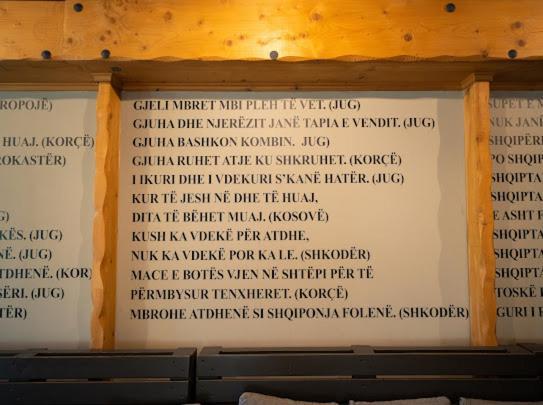 ROPOJË)
HUAJ. (KORÇË)
ROKASTËR)
G)
KËS. (JUG)
NË. (JUG)
TDHENË. (KOR)
SËRI. (JUG)
TËR)
GJELI MBRET MBI PLEH TË VET. (JUG)
GJUHA DHE NJERËZIT JANË TAPIA E VENDIT. (JUG)
GJUHA BASHKON KOMBIN. JUG)
GJUHA RUHET ATJE KU SHKRUHET. (KORÇË)
I IKURI DHE I VDEKURI S’KANË HATËR. (JUG)
KUR TË JESH NË DHE TË HUAJ,
DITA TË BËHET MUAJ. (KOSOVË)
KUSH KA VDEKË PËR ATDHE,
NUK KA VDEKË POR KA LE. (SHKODËR)
MACE E BOTËS VJEN NË SHTËPI PËR TË
PËRMBYSUR TENXHERET. (KORÇË)
MBROHE ATDHENË SI SHQIPONJA FOLENË. (SHKODËR)
SUPET E M
NUK JANË
SHQIPËRI
PO SHQIP
SHQIPTA
SHQIPTA
E ASHT P
SHQIPTA
SHQIPTA
SHQIPTA
TOSKË E
GURI I H